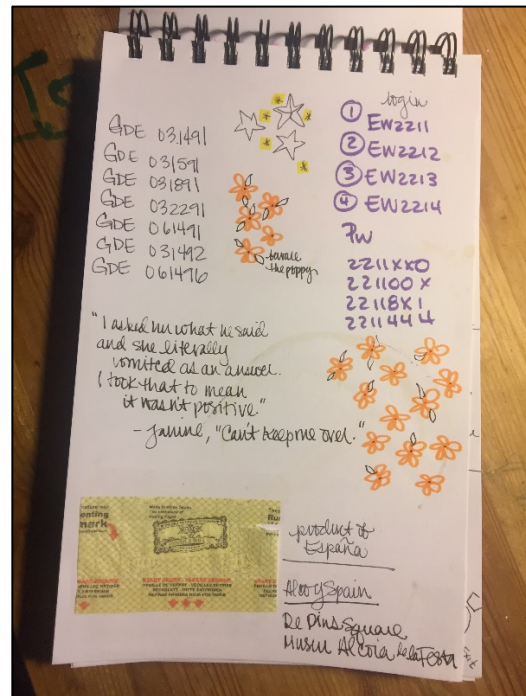 GDE 031491
GDE 031591
GDE 031891
GDE 032291
GDE 061491
GDE 031492
GDE 061496
beware
the poppy
login
① EW2211
② EW2212
③ EW2213
④ EW2214
PW
2211XX0
221100X
22118X1
2211444
"I asked her what he said
and she literally
vomited as an answer.
I took that to mean
it wasn't positive."
- Janine, "Can't keep me over."
enting
mark
product of
España
Alcoy Spain
De Dins Square
Museu Alcoia de la Festa